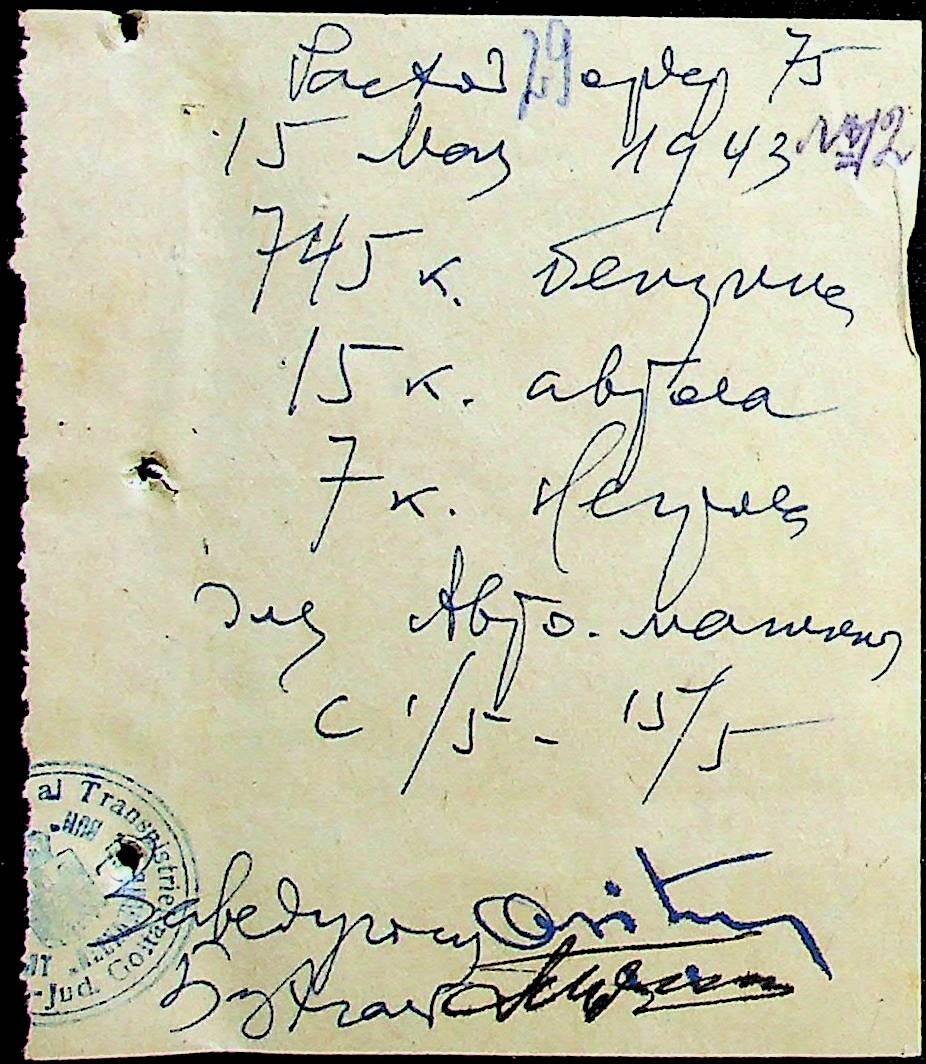 Расход 29 ордер 75
15 Мая 1943 № 12
745 к. бензина
15 к. автола
7 к. Негрола
для Авто. машины
с 1/5 - 15/5
al Transnistrie
Jud. Golta
Заведующий
Бухгалт